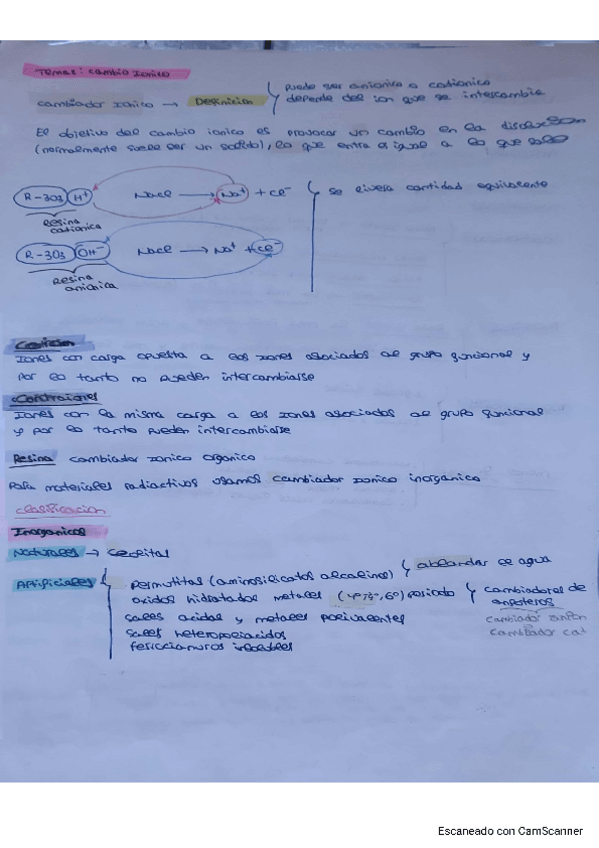 Tema: cambio Ionico
cambiador ionico → Definicion
puede ser anionico o cationico
depende del ion que se intercambie
El objetivo del cambio ionico es provocar un cambio en la disolucion
(normalmente suele ser un solido), lo que entra es igual a lo que sale
R-SO3 H+ NaCl → Na+ + Cl- se libera cantidad equivalente
Resina
cationica
R-SO3 OH- NaCl → Na+ + Cl-
Resina
anionica
Coviones
Iones con carga opuesta a los iones asociados al grupo funcional y
por lo tanto no pueden intercambiarse
Contraiones
Iones con la misma carga a los iones asociados al grupo funcional
y por lo tanto pueden intercambiarse
Resina cambiador ionico organico
Para materiales radiactivos usamos cambiador ionico inorganico
clasificacion
Inorganicos
Naturales → Ceolitas
Artificiales
Permutitas (aminosilicatos alcalinos) ablandar el agua
oxidos hidratados metales (4º, 5º, 6º) periodo cambiadores de
anfoteros
sales acidas y metales polivalentes cambiador anion
sales heteropoliacidos cambiador cat
ferrocianuros insolubles
Escaneado con CamScanner